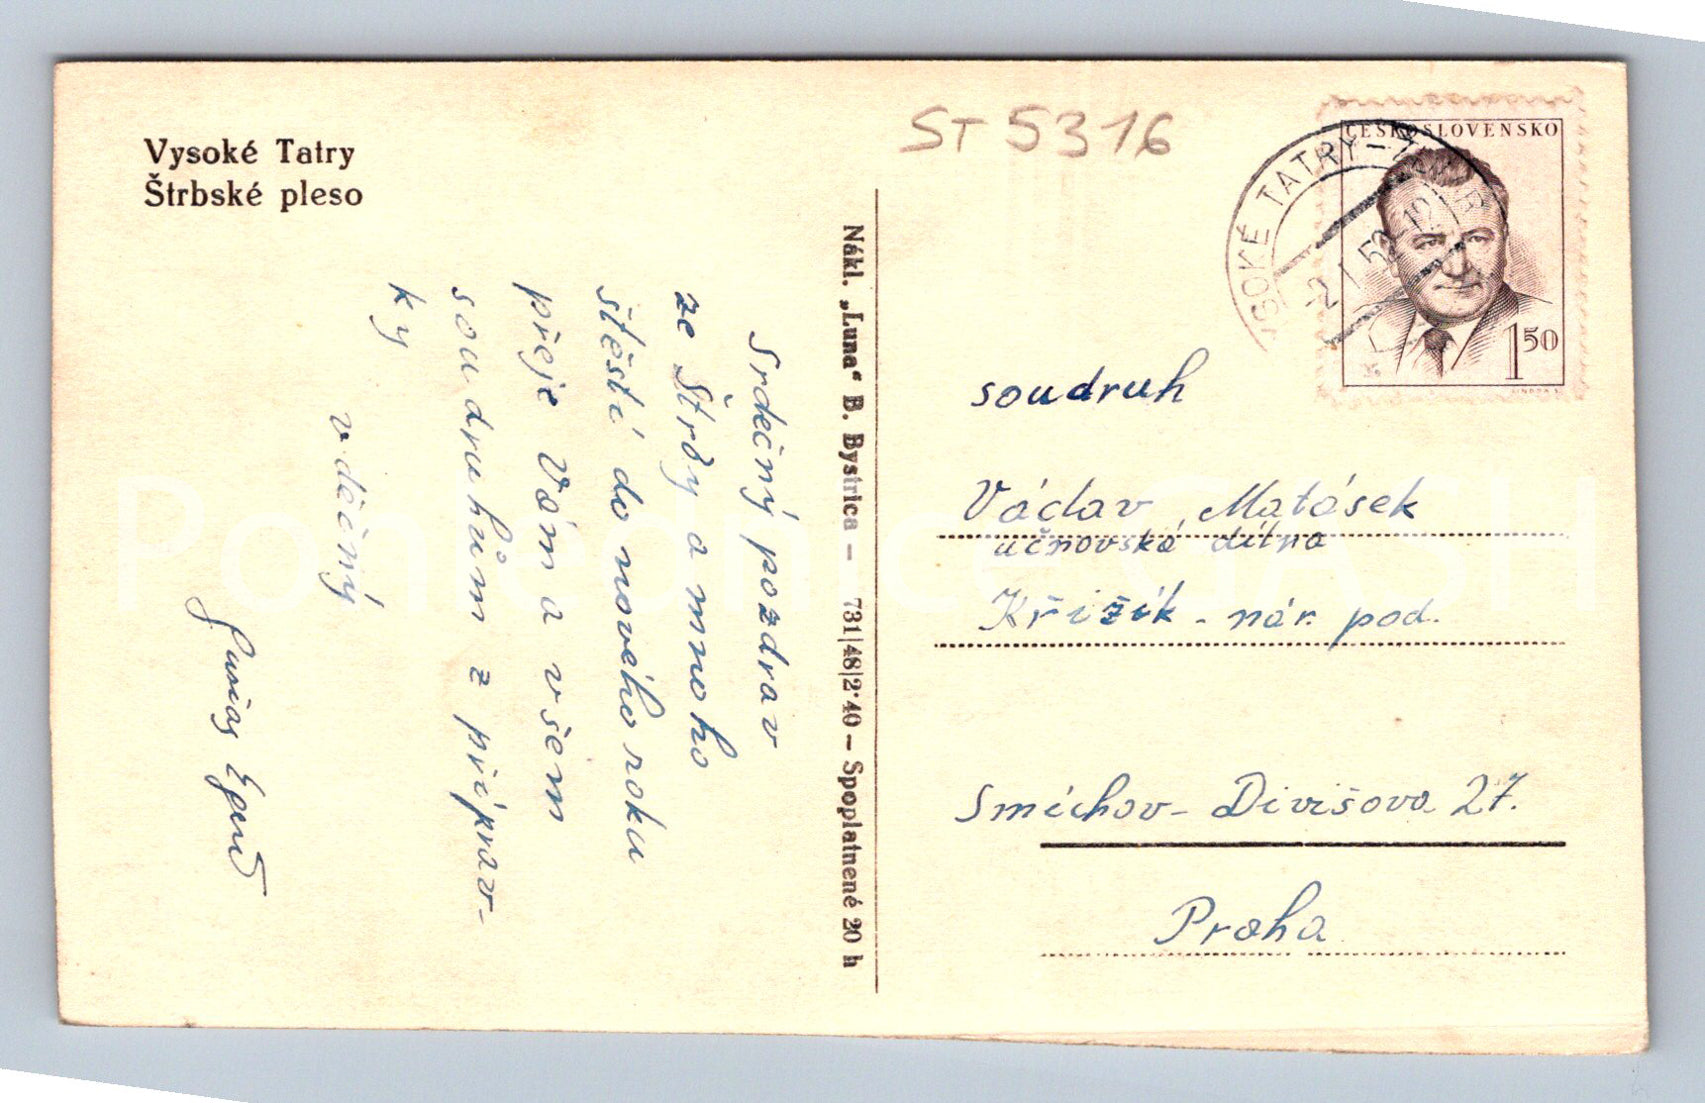 Vysoké Tatry
Štrbské pleso
Srdečný pozdrav
ze Štrby a mnoho
štěstí do nového roku
přeje Vám a všem
soudruhům z příprav-
ky
vděčný
Nákl. „Luna“ B. Bystrica – 731|48|2·40 – Spoplatnené 20 h
ST 5316
ČESKOSLOVENSKO
1 50
VYSOKÉ TATRY
soudruh
Václav Matásek
učňovská dílna
Křižík - nár. pod.
Smíchov - Divišova 27.
Praha
Pohlednice GASH